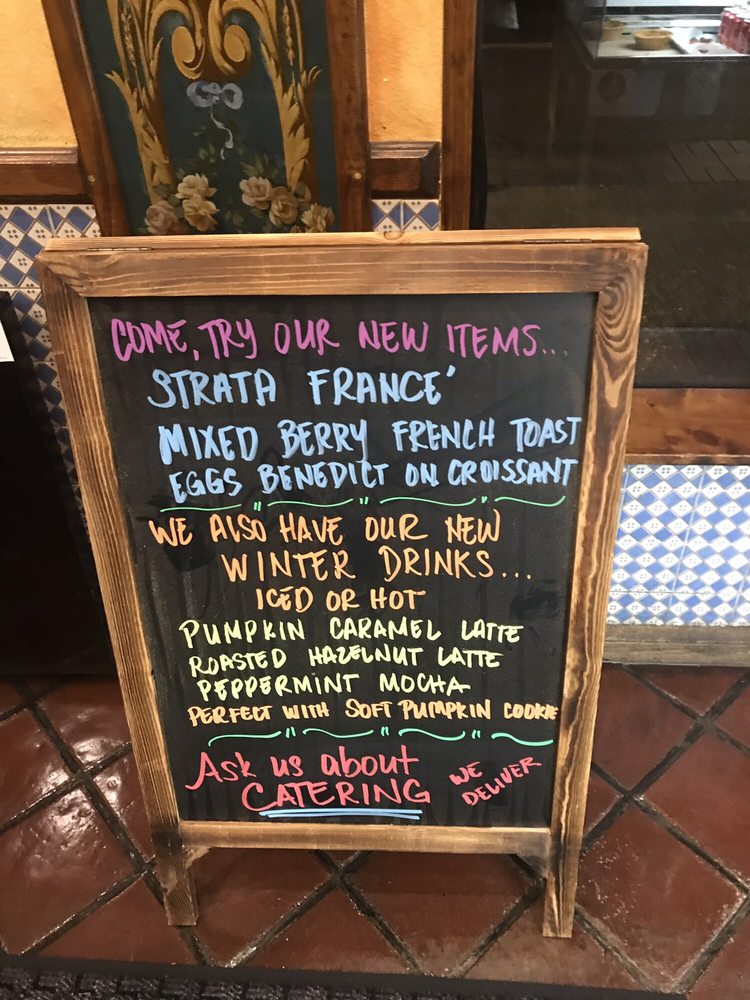 COME, TRY OUR NEW ITEMS...
STRATA FRANCE'
MIXED BERRY FRENCH TOAST
EGGS BENEDICT ON CROISSANT
WE ALSO HAVE OUR NEW
WINTER DRINKS...
ICED OR HOT
PUMPKIN CARAMEL LATTE
ROASTED HAZELNUT LATTE
PEPPERMINT MOCHA
PERFECT WITH SOFT PUMPKIN COOKIE
Ask us about
CATERING
WE
DELIVER